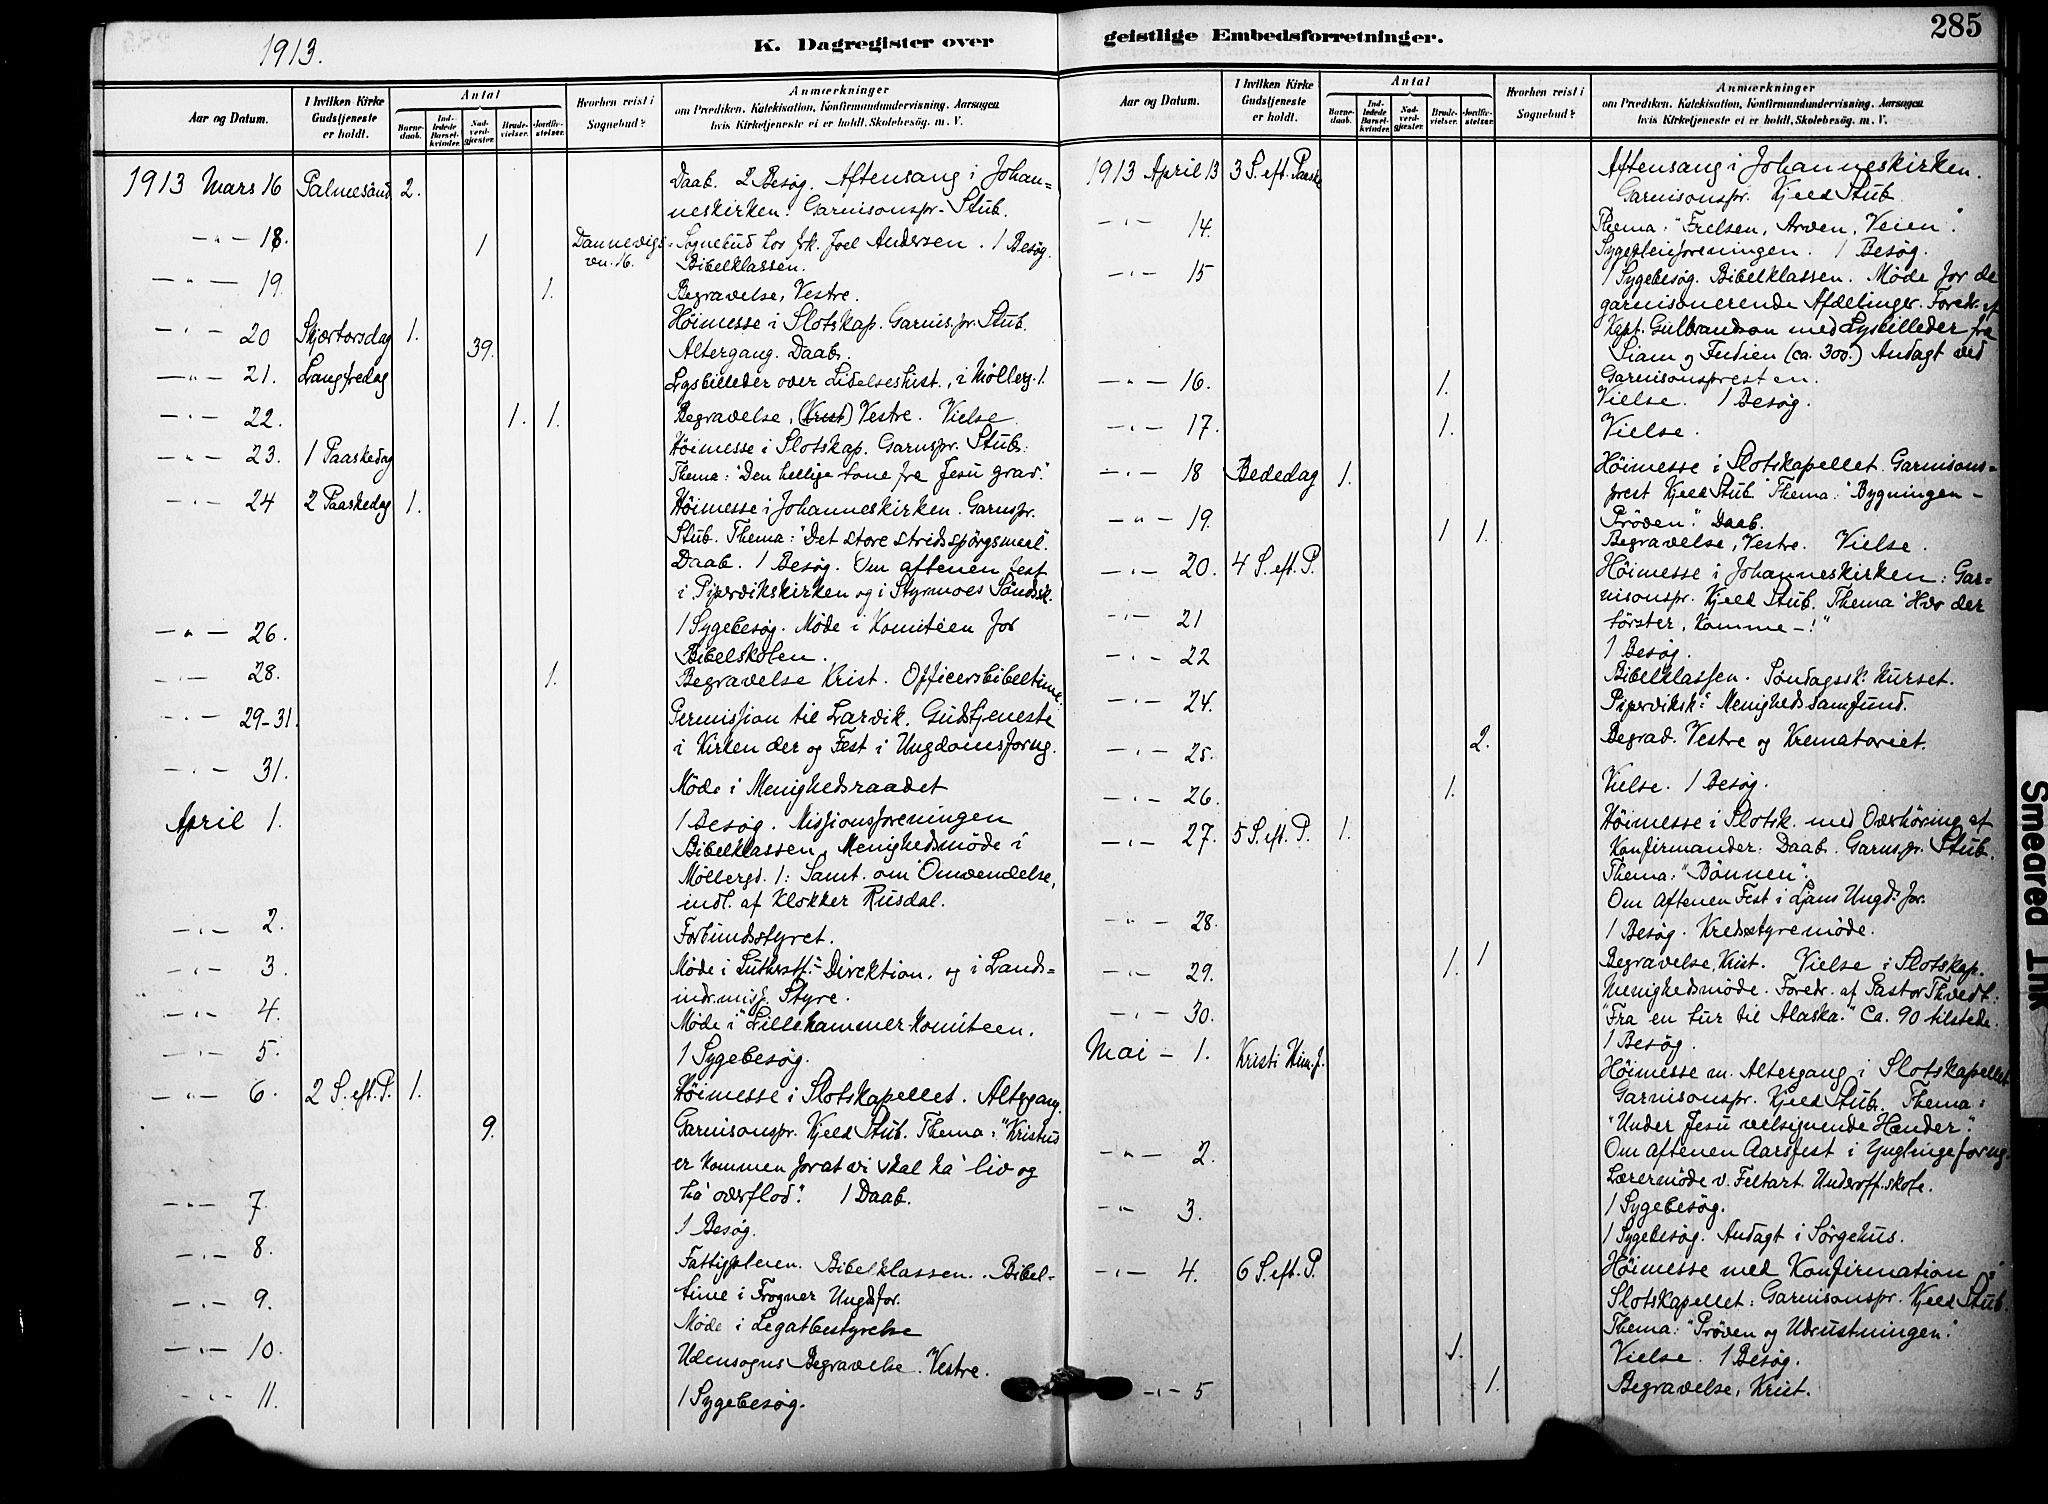 1913.
K. Dagregister over
Aar og Datum.
I hvilken Kirke Gudstjeneste er holdt.
Antal
Barnedaab.
Indledede Barselkvinder.
Nadverdgjæster.
Brudevielser.
Jordfæstelser.
Hvorhen reist i Sognebud?
Anmærkninger
om Prædiken, Katekisation, Konfirmandundervisning, Aarsagen
hvis Kirketjeneste ei er holdt, Skolebesøg. m. V.
1913 Mars 16 Palmesønd 2. Daab. 2 Besøg. Aftensang i Johan=
neskirken. Garnisonspr. Stub.
— " — 18. 1 Dannevigs- Sognebud hos frk. Joel Andersen. 1 Besøg.
vn. 16. Bibelklassen.
— " — 19. 1. Begravelse, Vestre.
— " — 20 Skjærtorsdag 1. Höimesse i Slotskap. Garnis.pr. Stub.
39. Altergang. Daab.
— " — 21. Langfredag Lysbilleder over Lidelseshist., i Møllerg. 1.
— " — 22. 1. 1. Begravelse, (Krist) Vestre. Vielse
— " — 23. 1 Paaskedag Höimesse i Slotskap. Garnspr. Stub.
Thema: "Den hellige tone fra Jesu grav."
— " — 24 2 Paaskedag 1. Höimesse i Johanneskirken. Garnspr.
Stub. Thema: "Det store stridsspörgsmaal".
Daab. 1 Besøg. Om aftenen fest
i Pipervikskirken og i Styrmoes Söndssk.
— " — 26. 1 Sygebesøg. Møde i Komitéen for
Bibelskolen.
— " — 28. 1. Begravelse Krist. Officersbibeltime.
— " — 29-31. Permission til Larvik. Gudstjeneste
i Kirken der og Fest i Ungdomsforng.
— " — 31. Møde i Menighedsraadet
April 1. 1 Besøg. Missionsforeningen
Bibelklassen. Menighedsmøde i
Møllergd. 1: Samt. om Omvendelse,
indl. af Klokker Rusdal.
— " — 2. Forbundsstyret.
— " — 3. Møde i Lutherstf.= Direktion, og i Lands=
indr.misj. Styre.
— " — 4. Møde i Lillehammer komiteen.
— " — 5. 1 Sygebesøg.
— " — 6. 2 S. eft. P. 1. Höimesse i Slotskapellet. Altergang.
9. Garnisonspr. Kjeld Stub. Thema: "Kristus
er kommen forat vi skal ha' liv og
ha' overflod". 1 Daab.
— " — 7. 1 Besøg.
— " — 8. Fattigpleien. Bibelklassen. Bibel-
time i Frogner Ungdsfor.
— " — 9. Møde i Legatbestyrelse
— " — 10. Udensogns Begravelse. Vestre.
— " — 11. 1 Sygebesøg.
geistlige Embedsforretninger.
285
Aar og Datum.
I hvilken Kirke Gudstjeneste er holdt.
Antal
Barnedaab.
Indledede Barselkvinder.
Nadverdgjæster.
Brudevielser.
Jordfæstelser.
Hvorhen reist i Sognebud?
Anmærkninger
om Prædiken, Katekisation, Konfirmandundervisning, Aarsagen
hvis Kirketjeneste ei er holdt, Skolebesøg. m. V.
1913 April 13 3 S. eft. Paaske Aftensang i Johanneskirken.
Garnisonspr. Kjeld Stub.
Thema: "Frelsen, Arven, Veien".
— " — 14. Sygepleieforeningen. 1 Besøg.
— " — 15 1 Sygebesøg. Bibelklassen. Møde for de
garnisonerende Afdelinger. Foredr. af
Kapt. Gulbrandson med Lysbilleder fra
Siam og Indien (ca. 300.) Andagt ved
Garnisonspresten.
— " — 16. 1. Vielse. 1 Besøg.
— " — 17. 1. Vielse.
— " — 18 Bededag 1. Höimesse i Slotskapellet. Garnisons=
prest Kjeld Stub. Thema: "Bygningen —
Pröven". Daab.
— " — 19. 1 1. Begravelse, Vestre. Vielse.
— " — 20. 4 S. eft. P. Höimesse i Johanneskirken: Gar=
nisonspr. Kjeld Stub. Thema "Hvo der
törster, komme — !"
— " — 21 1 Besøg.
— " — 22 Bibelklassen. Söndagssk. kurset.
— " — 24. Piperviksk: Menighedssamfund.
— " — 25. 2. Begrav. Vestre og Krematoriet.
— " — 26. 1. Vielse. 1 Besøg.
— " — 27. 5 S. eft. P. 1. Höimesse i Slotsk. med Overhöring af
Konfirmander: Daab. Garnspr. Stub.
Thema: "Bönnen".
Om Aftenen Fest i Ljans Ungd. for.
— " — 28. 1 Besøg. Kredsstyremöde.
— " — 29. 1. 1 Begravelse, Krist. Vielse i Slotskap.
Menighedsmøde. Foredr. af Pastor Thvedt.
"Fra en tur til Alaska." Ca. 90 tilstede.
— " — 30. 1 Besøg.
Mai — 1. Kristi Him. f. Höimesse m. Altergang i Slotskapellet
Garnisonspr. Kjeld Stub. Thema:
"Under Jesu velsignende Hænder".
Om aftenen Aarsfest i Ynglingeforng.
— " — 2. Lærermöde v. Feltart. Underoff. skole.
1 Sygebesøg.
— " — 3. 1 Sygebesøg. Andagt i Sörgehus.
— " — 4. 6 S. eft. P. Höimesse med Konfirmation i
Slotskapellet: Garnisonspr. Kjeld Stub.
Thema: "Pröven og Udrustningen".
1. Vielse. 1 Besøg.
— " — 5 1. Begravelse, Krist.
Smeared Ink